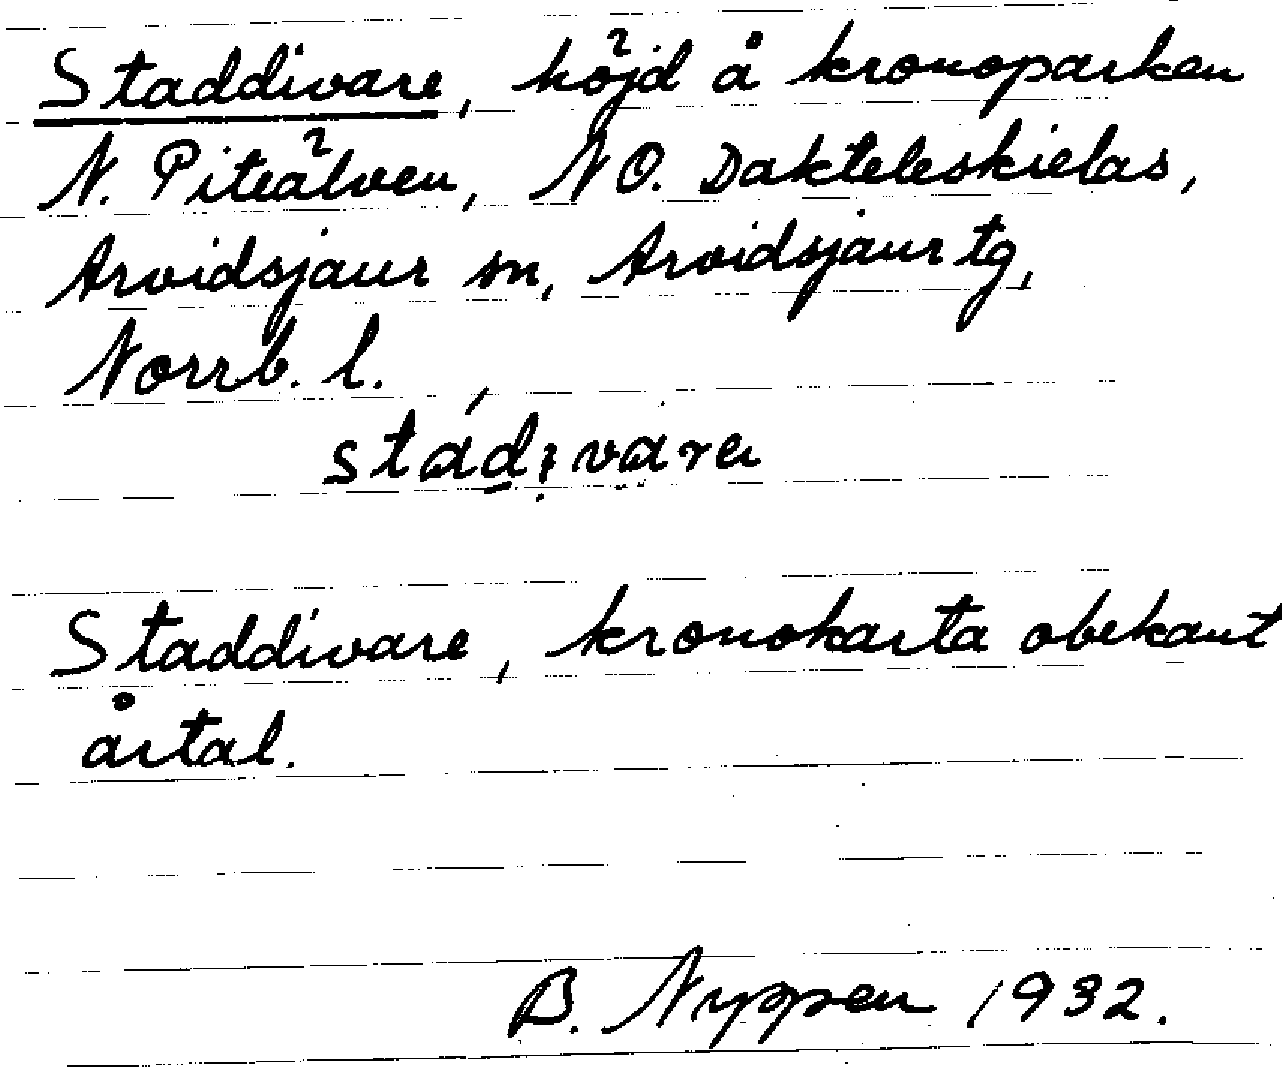 Staddivare, höjd å kronoparken
N. Piteälven, NO. Dakteleskielas,
Arvidsjaur sn, Arvidsjaur tg,
Norrb. l.
Staddivare, kronokarta obekant
årtal.
B. Nyppen 1932.